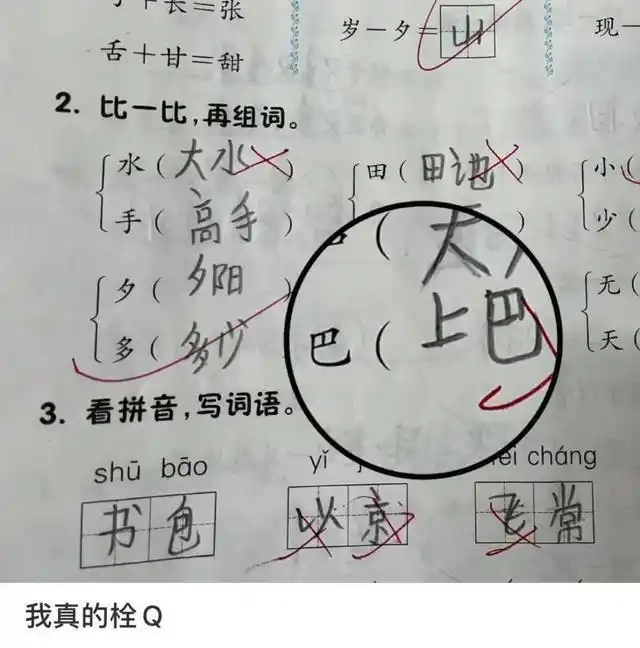 长=张
舌+甘=甜
岁-夕=山
现-
2. 比一比,再组词。
水(大水)
田(田地)
小(
手(高手)
少(
夕(夕阳)
天
无(
多(多少)
巴(上巴
天(
3. 看拼音,写词语。
shū bāo
yǐ
fēi cháng
书包
以京
飞常
我真的栓Q